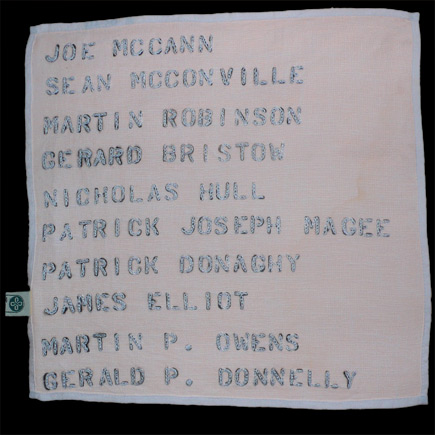 JOE MCCANN
SEAN MCCONVILLE
MARTIN ROBINSON
GERARD BRISTOW
NICHOLAS HULL
PATRICK JOSEPH MAGEE
PATRICK DONAGHY
JAMES ELLIOT
MARTIN P. OWENS
GERALD P. DONNELLY